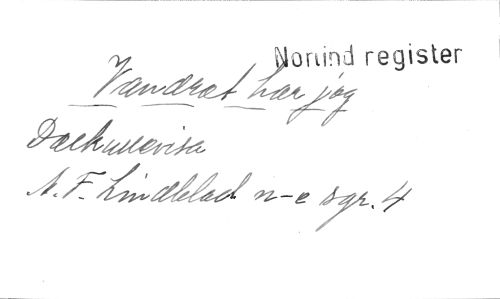 Nordind register
Vandrat har jag
Dalkullevisa
A. F. Lindblad n-e sgr. 4